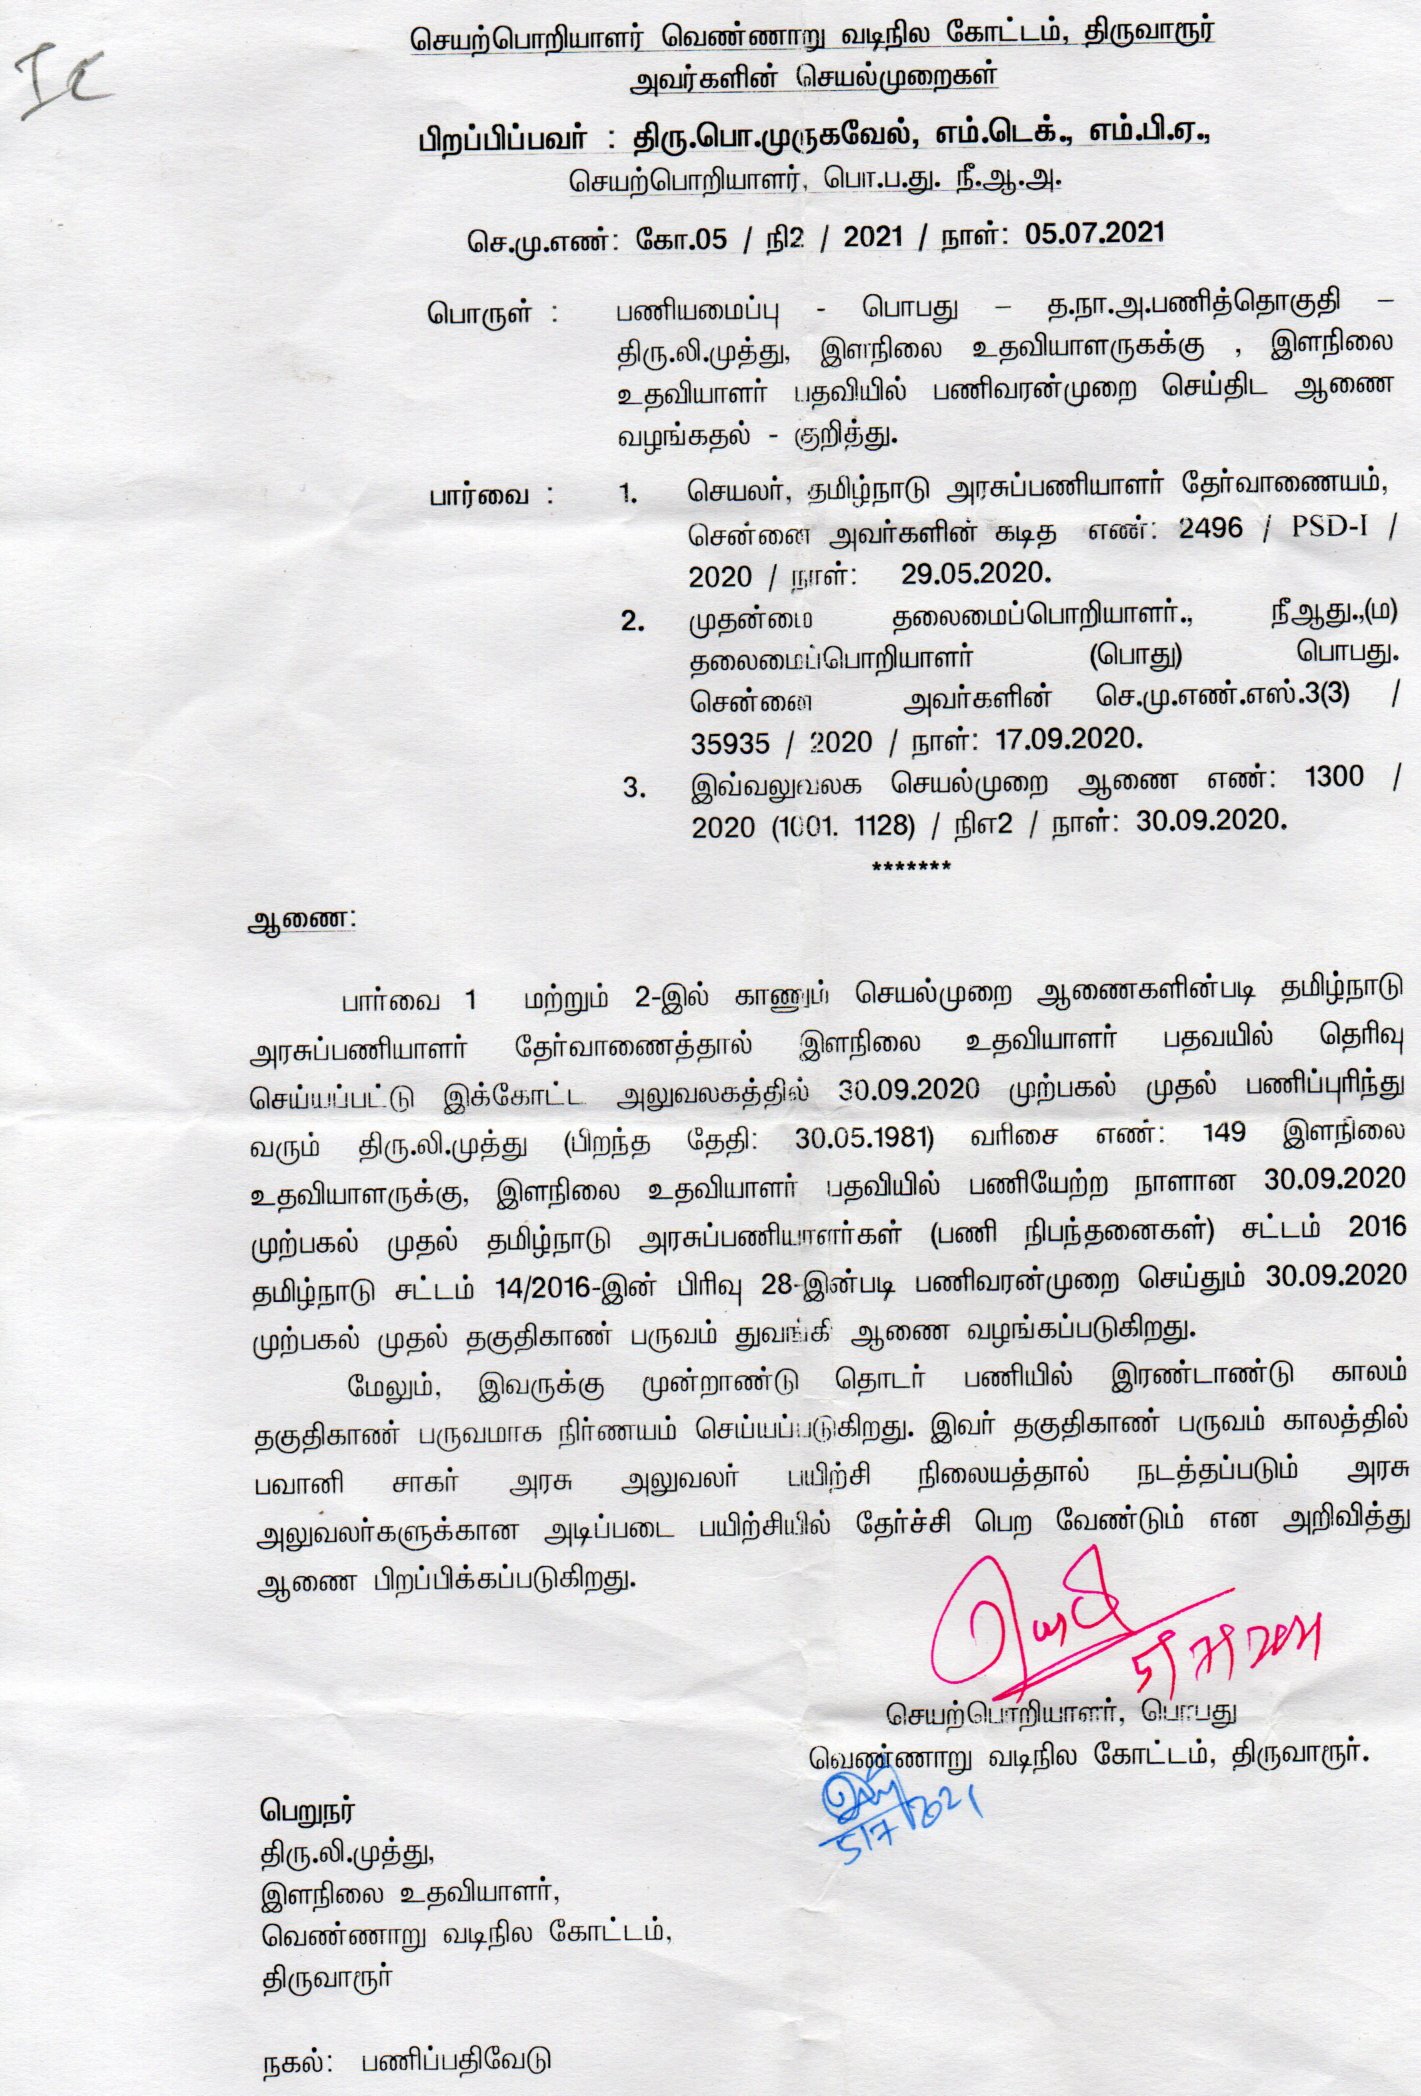 செயற்பொறியாளர் வெண்ணாறு வடிநில கோட்டம், திருவாரூர்
அவர்களின் செயல்முறைகள்
பிறப்பிப்பவர் : திரு.பொ.முருகவேல், எம்.டெக்., எம்.பி.ஏ.,
செயற்பொறியாளர், பொ.ப.து. நீ.ஆ.அ.
செ.மு.எண்: கோ.05 / நி2 / 2021 / நாள்: 05.07.2021
பொருள் : பணியமைப்பு - பொபது – த.நா.அ.பணித்தொகுதி –
திரு.லி.முத்து, இளநிலை உதவியாளருகக்கு , இளநிலை
உதவியாளர் பதவியில் பணிவரன்முறை செய்திட ஆணை
வழங்கதல் - குறித்து.
பார்வை : 1. செயலர், தமிழ்நாடு அரசுப்பணியாளர் தேர்வாணையம்,
சென்னை அவர்களின் கடித எண்: 2496 / PSD-I /
2020 / நாள்: 29.05.2020.
2. முதன்மை தலைமைப்பொறியாளர்., நீஆது.,(ம)
தலைமைப்பொறியாளர் (பொது) பொபது.
சென்னை அவர்களின் செ.மு.எண்.எஸ்.3(3) /
35935 / 2020 / நாள்: 17.09.2020.
3. இவ்வலுவலக செயல்முறை ஆணை எண்: 1300 /
2020 (1001. 1128) / நிஎ2 / நாள்: 30.09.2020.
*******
ஆணை:
பார்வை 1 மற்றும் 2-இல் காணும் செயல்முறை ஆணைகளின்படி தமிழ்நாடு
அரசுப்பணியாளர் தேர்வாணைத்தால் இளநிலை உதவியாளர் பதவயில் தெரிவு
செய்யப்பட்டு இக்கோட்ட அலுவலகத்தில் 30.09.2020 முற்பகல் முதல் பணிப்புரிந்து
வரும் திரு.லி.முத்து (பிறந்த தேதி: 30.05.1981) வரிசை எண்: 149 இளநிலை
உதவியாளருக்கு, இளநிலை உதவியாளர் பதவியில் பணியேற்ற நாளான 30.09.2020
முற்பகல் முதல் தமிழ்நாடு அரசுப்பணியாளர்கள் (பணி நிபந்தனைகள்) சட்டம் 2016
தமிழ்நாடு சட்டம் 14/2016-இன் பிரிவு 28-இன்படி பணிவரன்முறை செய்தும் 30.09.2020
முற்பகல் முதல் தகுதிகாண் பருவம் துவங்கி ஆணை வழங்கப்படுகிறது.
மேலும், இவருக்கு மூன்றாண்டு தொடர் பணியில் இரண்டாண்டு காலம்
தகுதிகாண் பருவமாக நிர்ணயம் செய்யப்படுகிறது. இவர் தகுதிகாண் பருவம் காலத்தில்
பவானி சாகர் அரசு அலுவலர் பயிற்சி நிலையத்தால் நடத்தப்படும் அரசு
அலுவலர்களுக்கான அடிப்படை பயிற்சியில் தேர்ச்சி பெற வேண்டும் என அறிவித்து
ஆணை பிறப்பிக்கப்படுகிறது.
5/7/2021
செயற்பொறியாளர், பொபது
வெண்ணாறு வடிநில கோட்டம், திருவாரூர்.
5/7/2021
பெறுநர்
திரு.லி.முத்து,
இளநிலை உதவியாளர்,
வெண்ணாறு வடிநில கோட்டம்,
திருவாரூர்
நகல்: பணிப்பதிவேடு